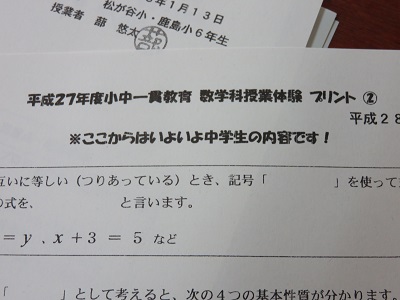 年１月１３日
松が谷小・鹿島小６年生
授業者 蔀 悠太
平成２７年度小中一貫教育 数学科授業体験 プリント ②
平成２８
※ここからはいよいよ中学生の内容です！
互いに等しい（つりあっている）とき、記号「　　　　　」を使って
の式を、　　　　　と言います。
= y 、x + 3 = 5 など
「　　　　」として考えると、次の４つの基本性質が分かります。